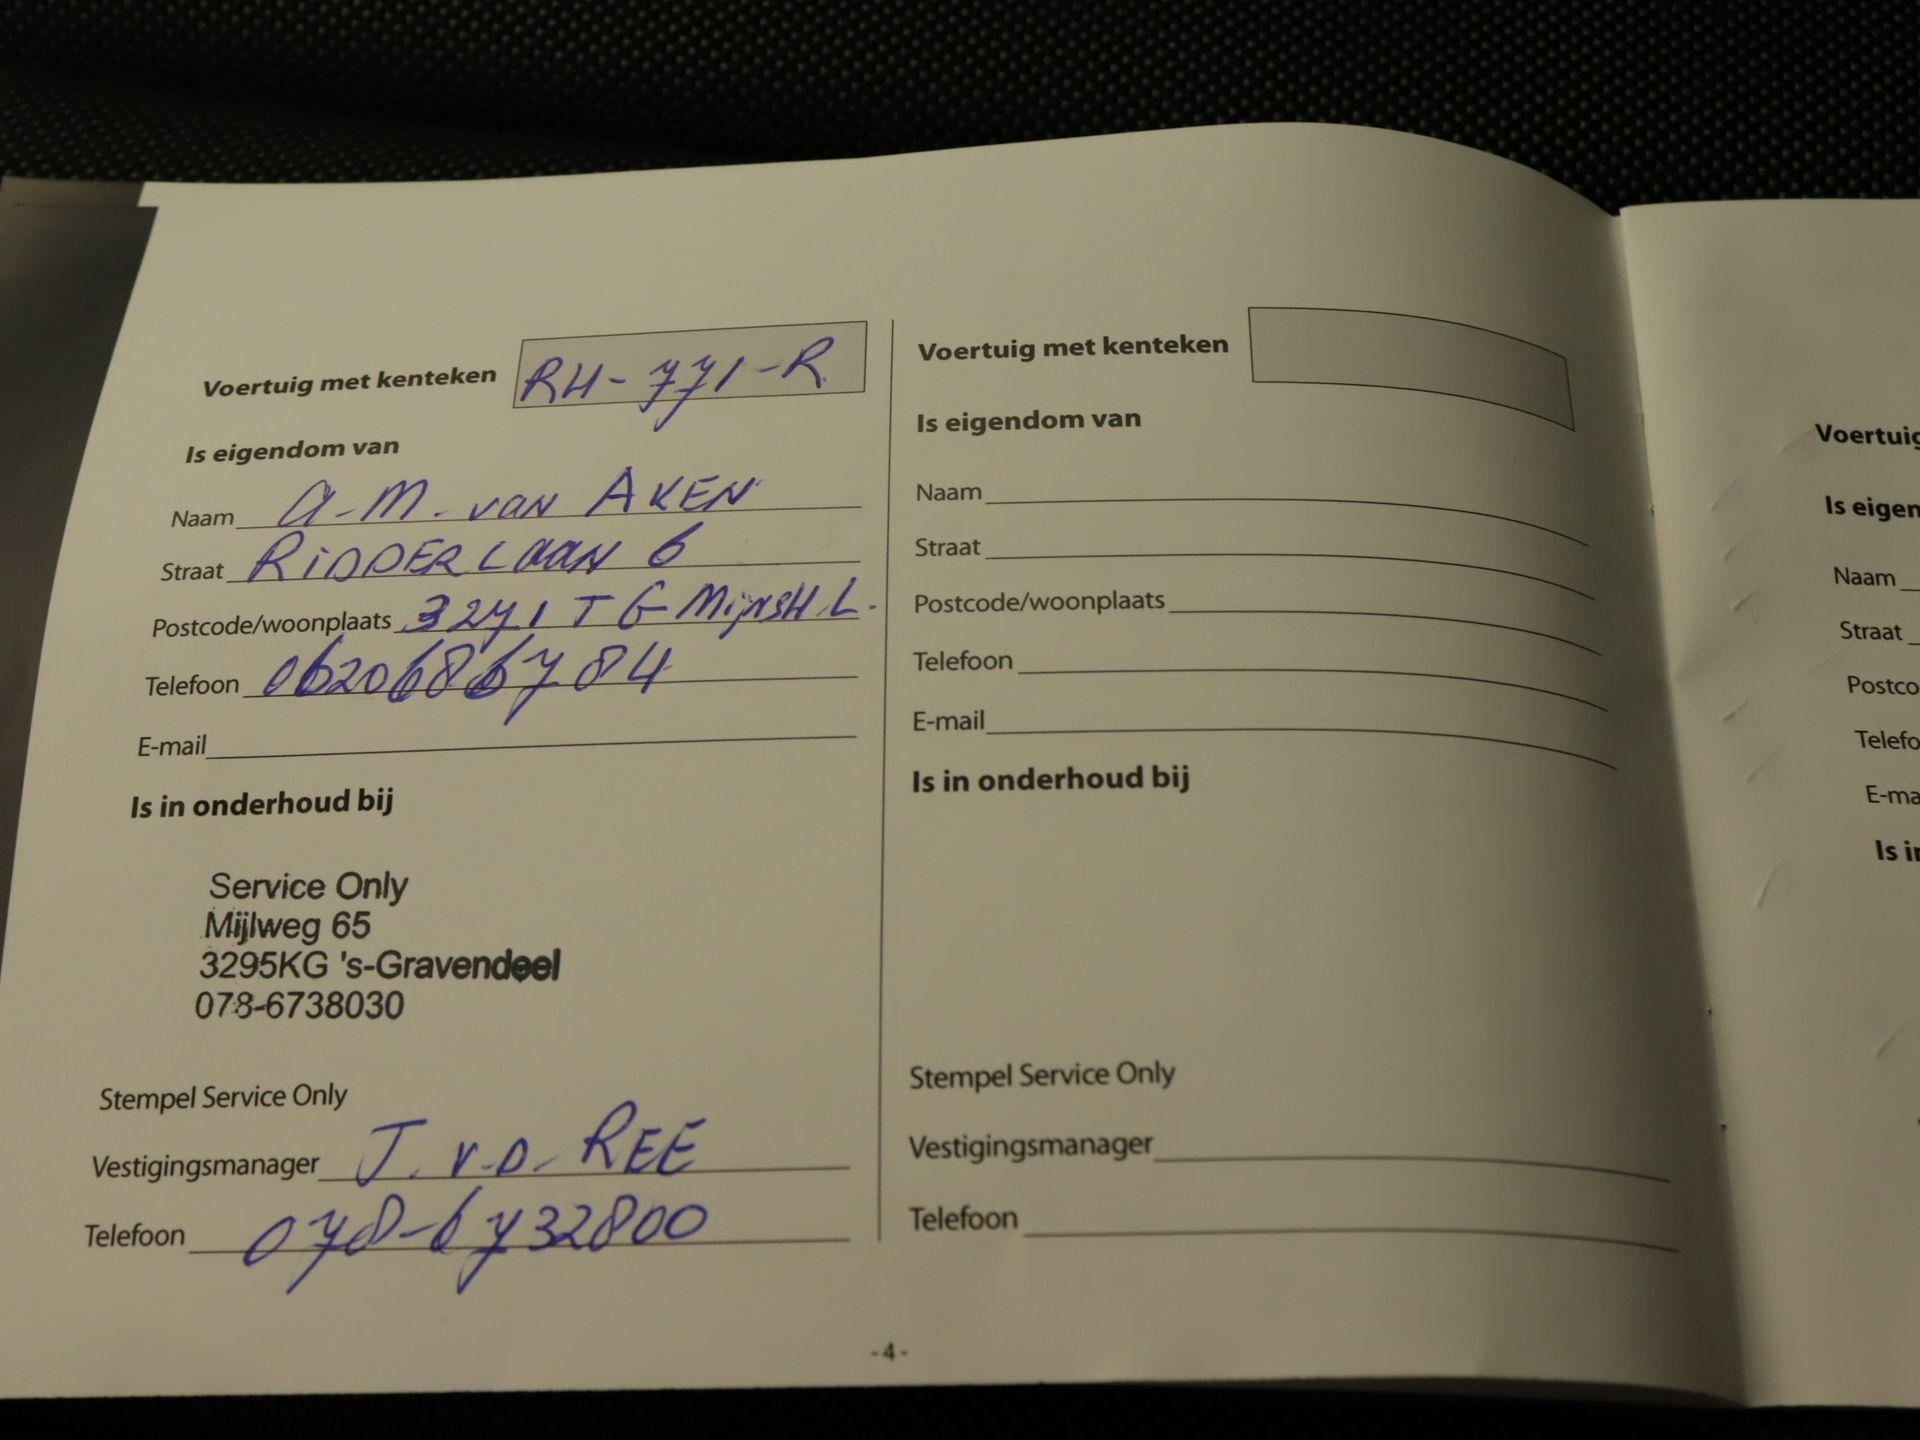 Voertuig met kenteken RH-771-R
Is eigendom van
Naam A.M. van AKEN
Straat RiDDERLaan 6
Postcode/woonplaats 3271 TG MijnsH.L.
Telefoon 0620686784
E-mail
Is in onderhoud bij
Service Only
Mijlweg 65
3295KG 's-Gravendeel
078-6738030
Stempel Service Only
Vestigingsmanager J. v.D. REE
Telefoon 078-6732800
Voertuig met kenteken
Is eigendom van
Naam
Straat
Postcode/woonplaats
Telefoon
E-mail
Is in onderhoud bij
Stempel Service Only
Vestigingsmanager
Telefoon
-4-
Voertuig
Is eigen
Naam
Straat
Postco
Telefo
E-ma
Is in